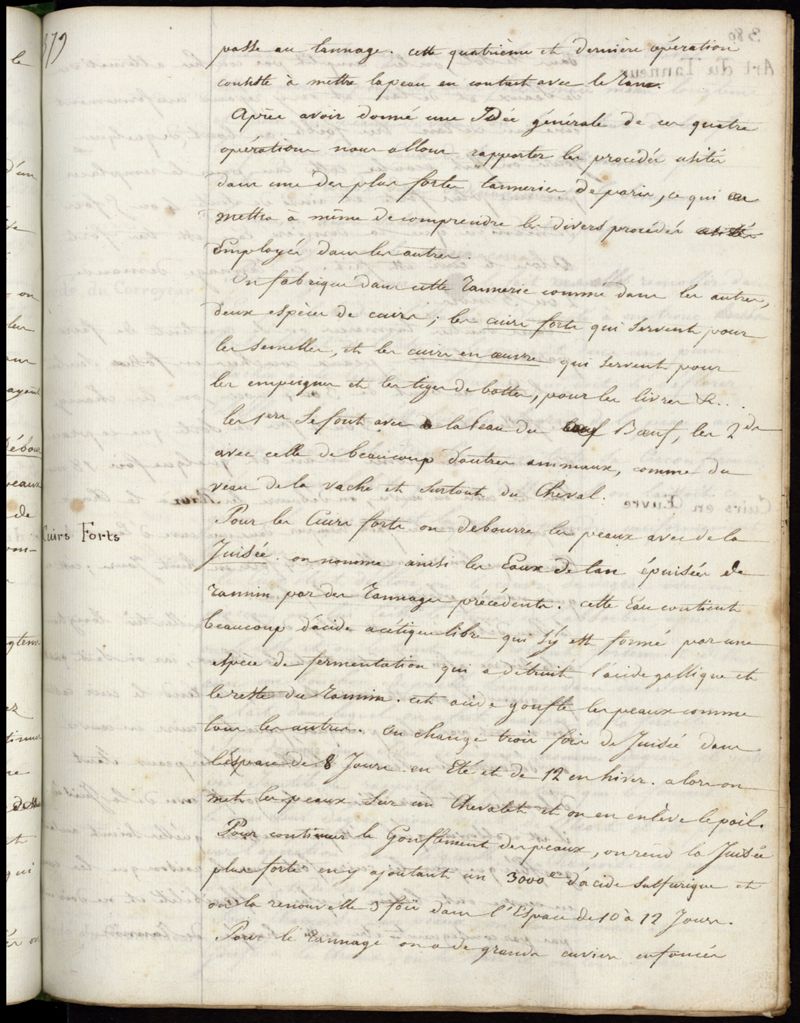 379
passe au tannage. cette quatrième et dernière opération
consiste à mettre la peau en contact avec le tan.
Après avoir donné une Idée générale de ces quatre
opérations nous allons rapporter les procédés usités
dans une des plus fortes tanneries de paris, ce qui
mettra à même de comprendre les divers procédés usités
Employés dans les autres.
On fabrique dans cette Tannerie comme dans les autres,
deux espèces de cuirs ; les cuirs forts qui servent pour
les semelles, et les cuirs en œuvre qui servent pour
les empeignes et les tiges de bottes, pour les livres &..
les 1ers se font avec la Peau du Bœuf, les 2ds
avec celle de beaucoup d'autres animaux, comme du
veau de la vache et surtout du Cheval.
Cuirs Forts
Pour les Cuirs forts on debourre les peaux avec de la
Jusée. on nomme ainsi les Eaux de tan épuisées de
Tannin par des Tannages précédents. cette Eau contient
beaucoup d'acide acétique libre qui s'y est formé par une
espèce de fermentation qui a détruit l'acide gallique et
le reste du Tannin. cet acide gonfle les peaux comme
tous les autres. on change trois fois de Jusée dans
l'Espace de 8 Jours en Eté et de 12 en hiver. alors on
met les peaux sur un Chevalet et on en enlève le poil.
Pour continuer le Gonflement des peaux, on rend la Jusée
plus forte en y ajoutant un 3000e d'acide sulfurique et
on la renouvelle 3 fois dans l'Espace de 10 à 12 Jours.
Pour le Tannage on a de grands cuviers enfoncés